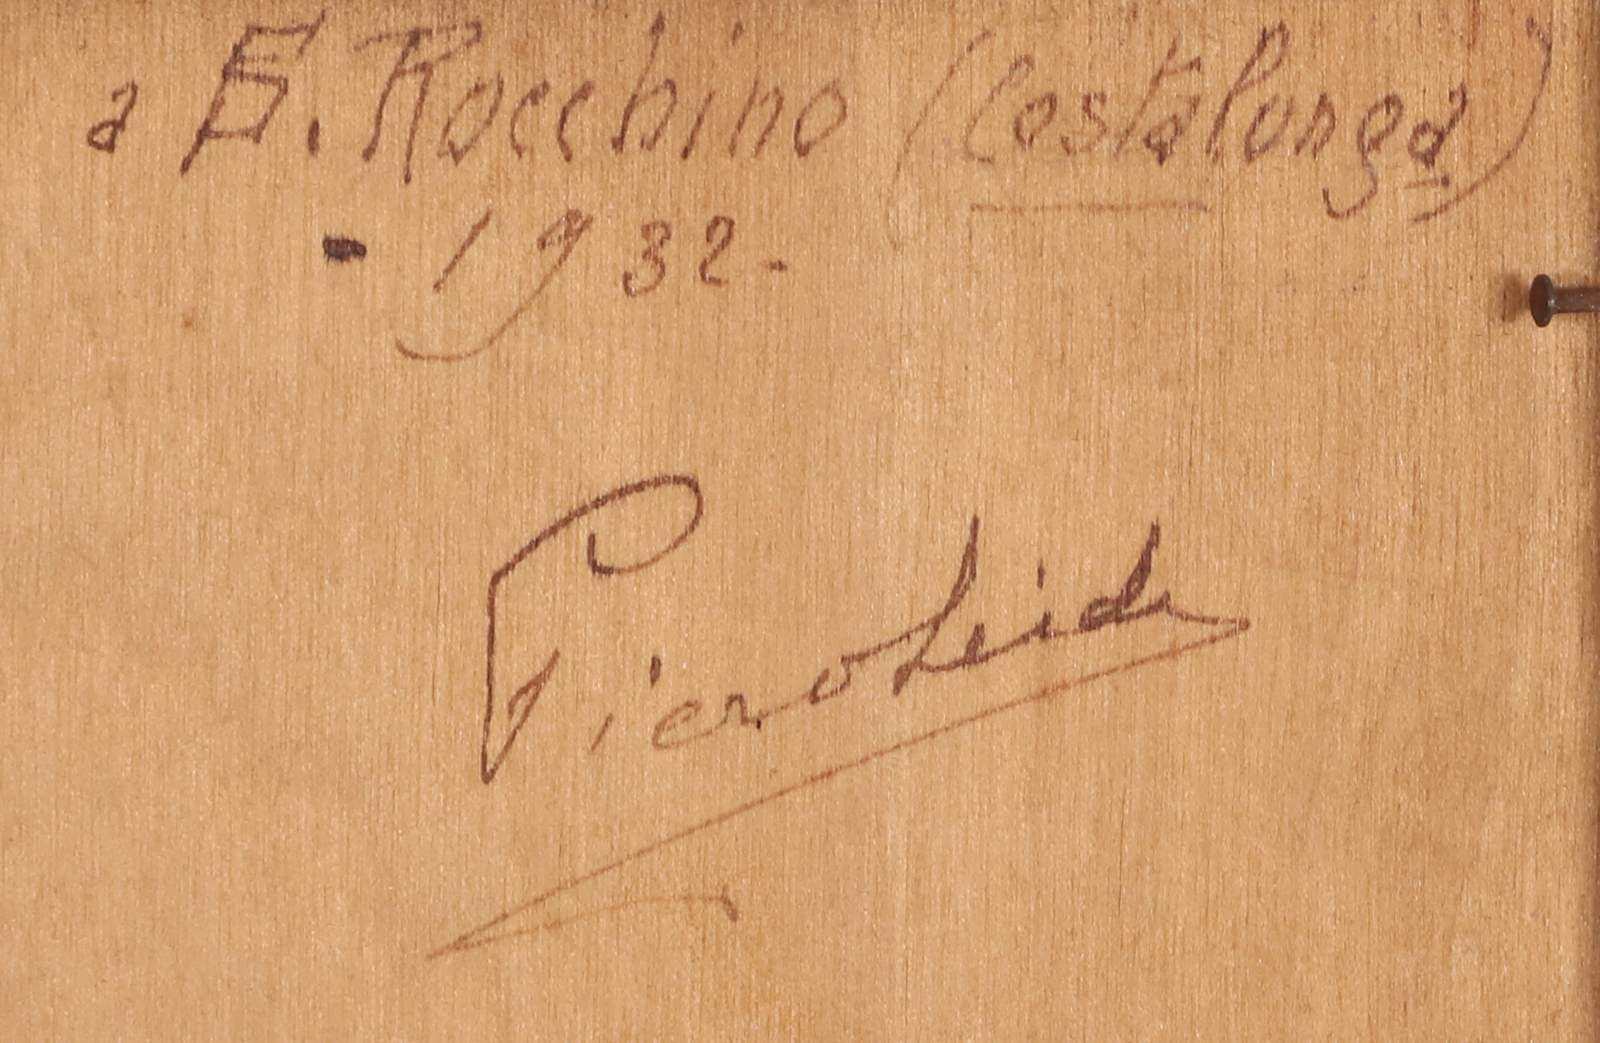 a S. Rocchino (Costalunga)
- 1932 -
Piero Leidi